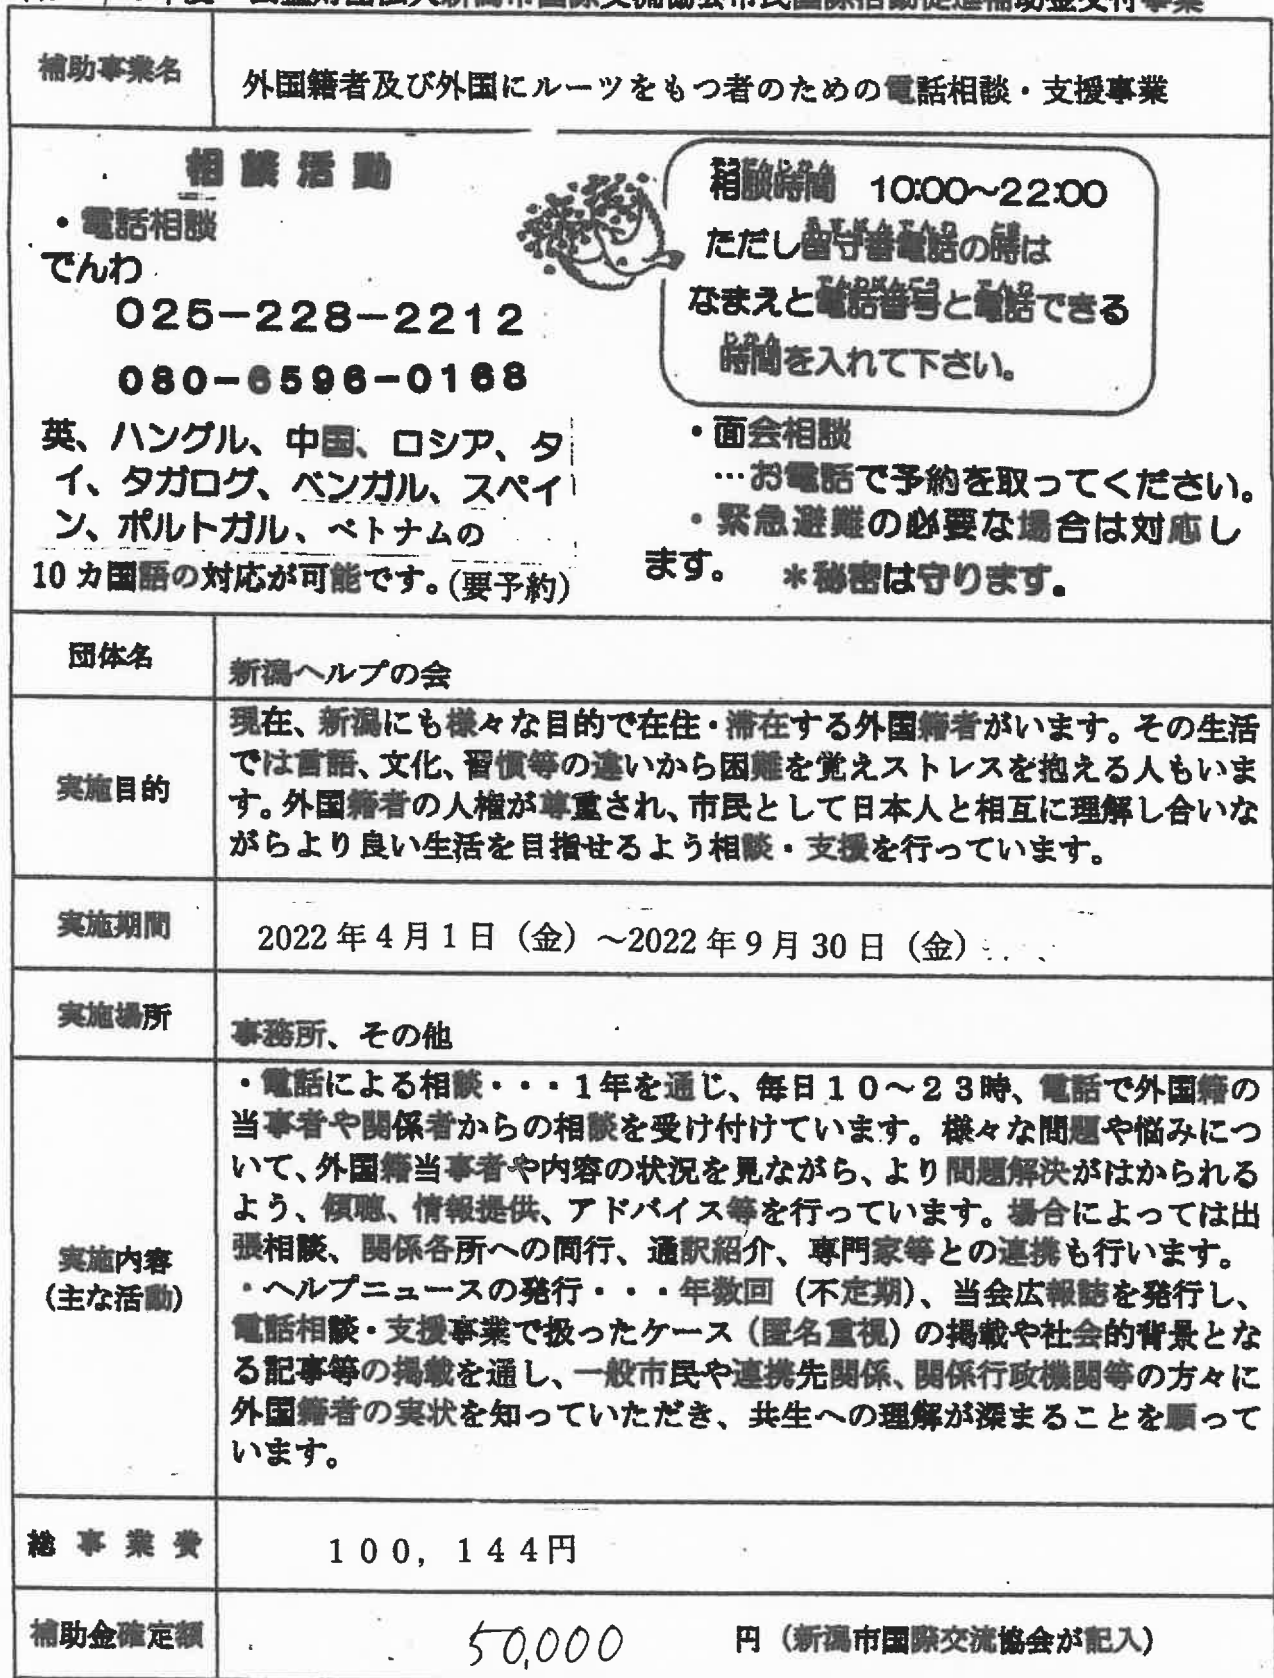 公益財団法人新潟市国際交流協会市民国際活動促進補助金交付事業
補助事業名
外国籍者及び外国にルーツをもつ者のための電話相談・支援事業
相談活動
・電話相談
でんわ
025-228-2212
080-6596-0168
英、ハングル、中国、ロシア、タ
イ、タガログ、ベンガル、スペイ
ン、ポルトガル、ベトナムの
10カ国語の対応が可能です。(要予約)
相談時間 10:00~22:00
ただし留守番電話の時は
なまえと電話番号と電話できる
時間を入れて下さい。
・面会相談
…お電話で予約を取ってください。
・緊急避難の必要な場合は対応し
ます。 *秘密は守ります。
団体名
新潟ヘルプの会
実施目的
現在、新潟にも様々な目的で在住・滞在する外国籍者がいます。その生活
では言語、文化、習慣等の違いから困難を覚えストレスを抱える人もいま
す。外国籍者の人権が尊重され、市民として日本人と相互に理解し合いな
がらより良い生活を目指せるよう相談・支援を行っています。
実施期間
2022年4月1日(金)~2022年9月30日(金)
実施場所
事務所、その他
実施内容
(主な活動)
・電話による相談・・・1年を通じ、毎日10~23時、電話で外国籍の
当事者や関係者からの相談を受け付けています。様々な問題や悩みにつ
いて、外国籍当事者や内容の状況を見ながら、より問題解決がはかられる
よう、傾聴、情報提供、アドバイス等を行っています。場合によっては出
張相談、関係各所への同行、通訳紹介、専門家等との連携も行います。
・ヘルプニュースの発行・・・年数回(不定期)、当会広報誌を発行し、
電話相談・支援事業で扱ったケース(匿名重視)の掲載や社会的背景とな
る記事等の掲載を通し、一般市民や連携先関係、関係行政機関等の方々に
外国籍者の実状を知っていただき、共生への理解が深まることを願って
います。
総事業費
100,144円
補助金確定額
50,000 円(新潟市国際交流協会が記入)